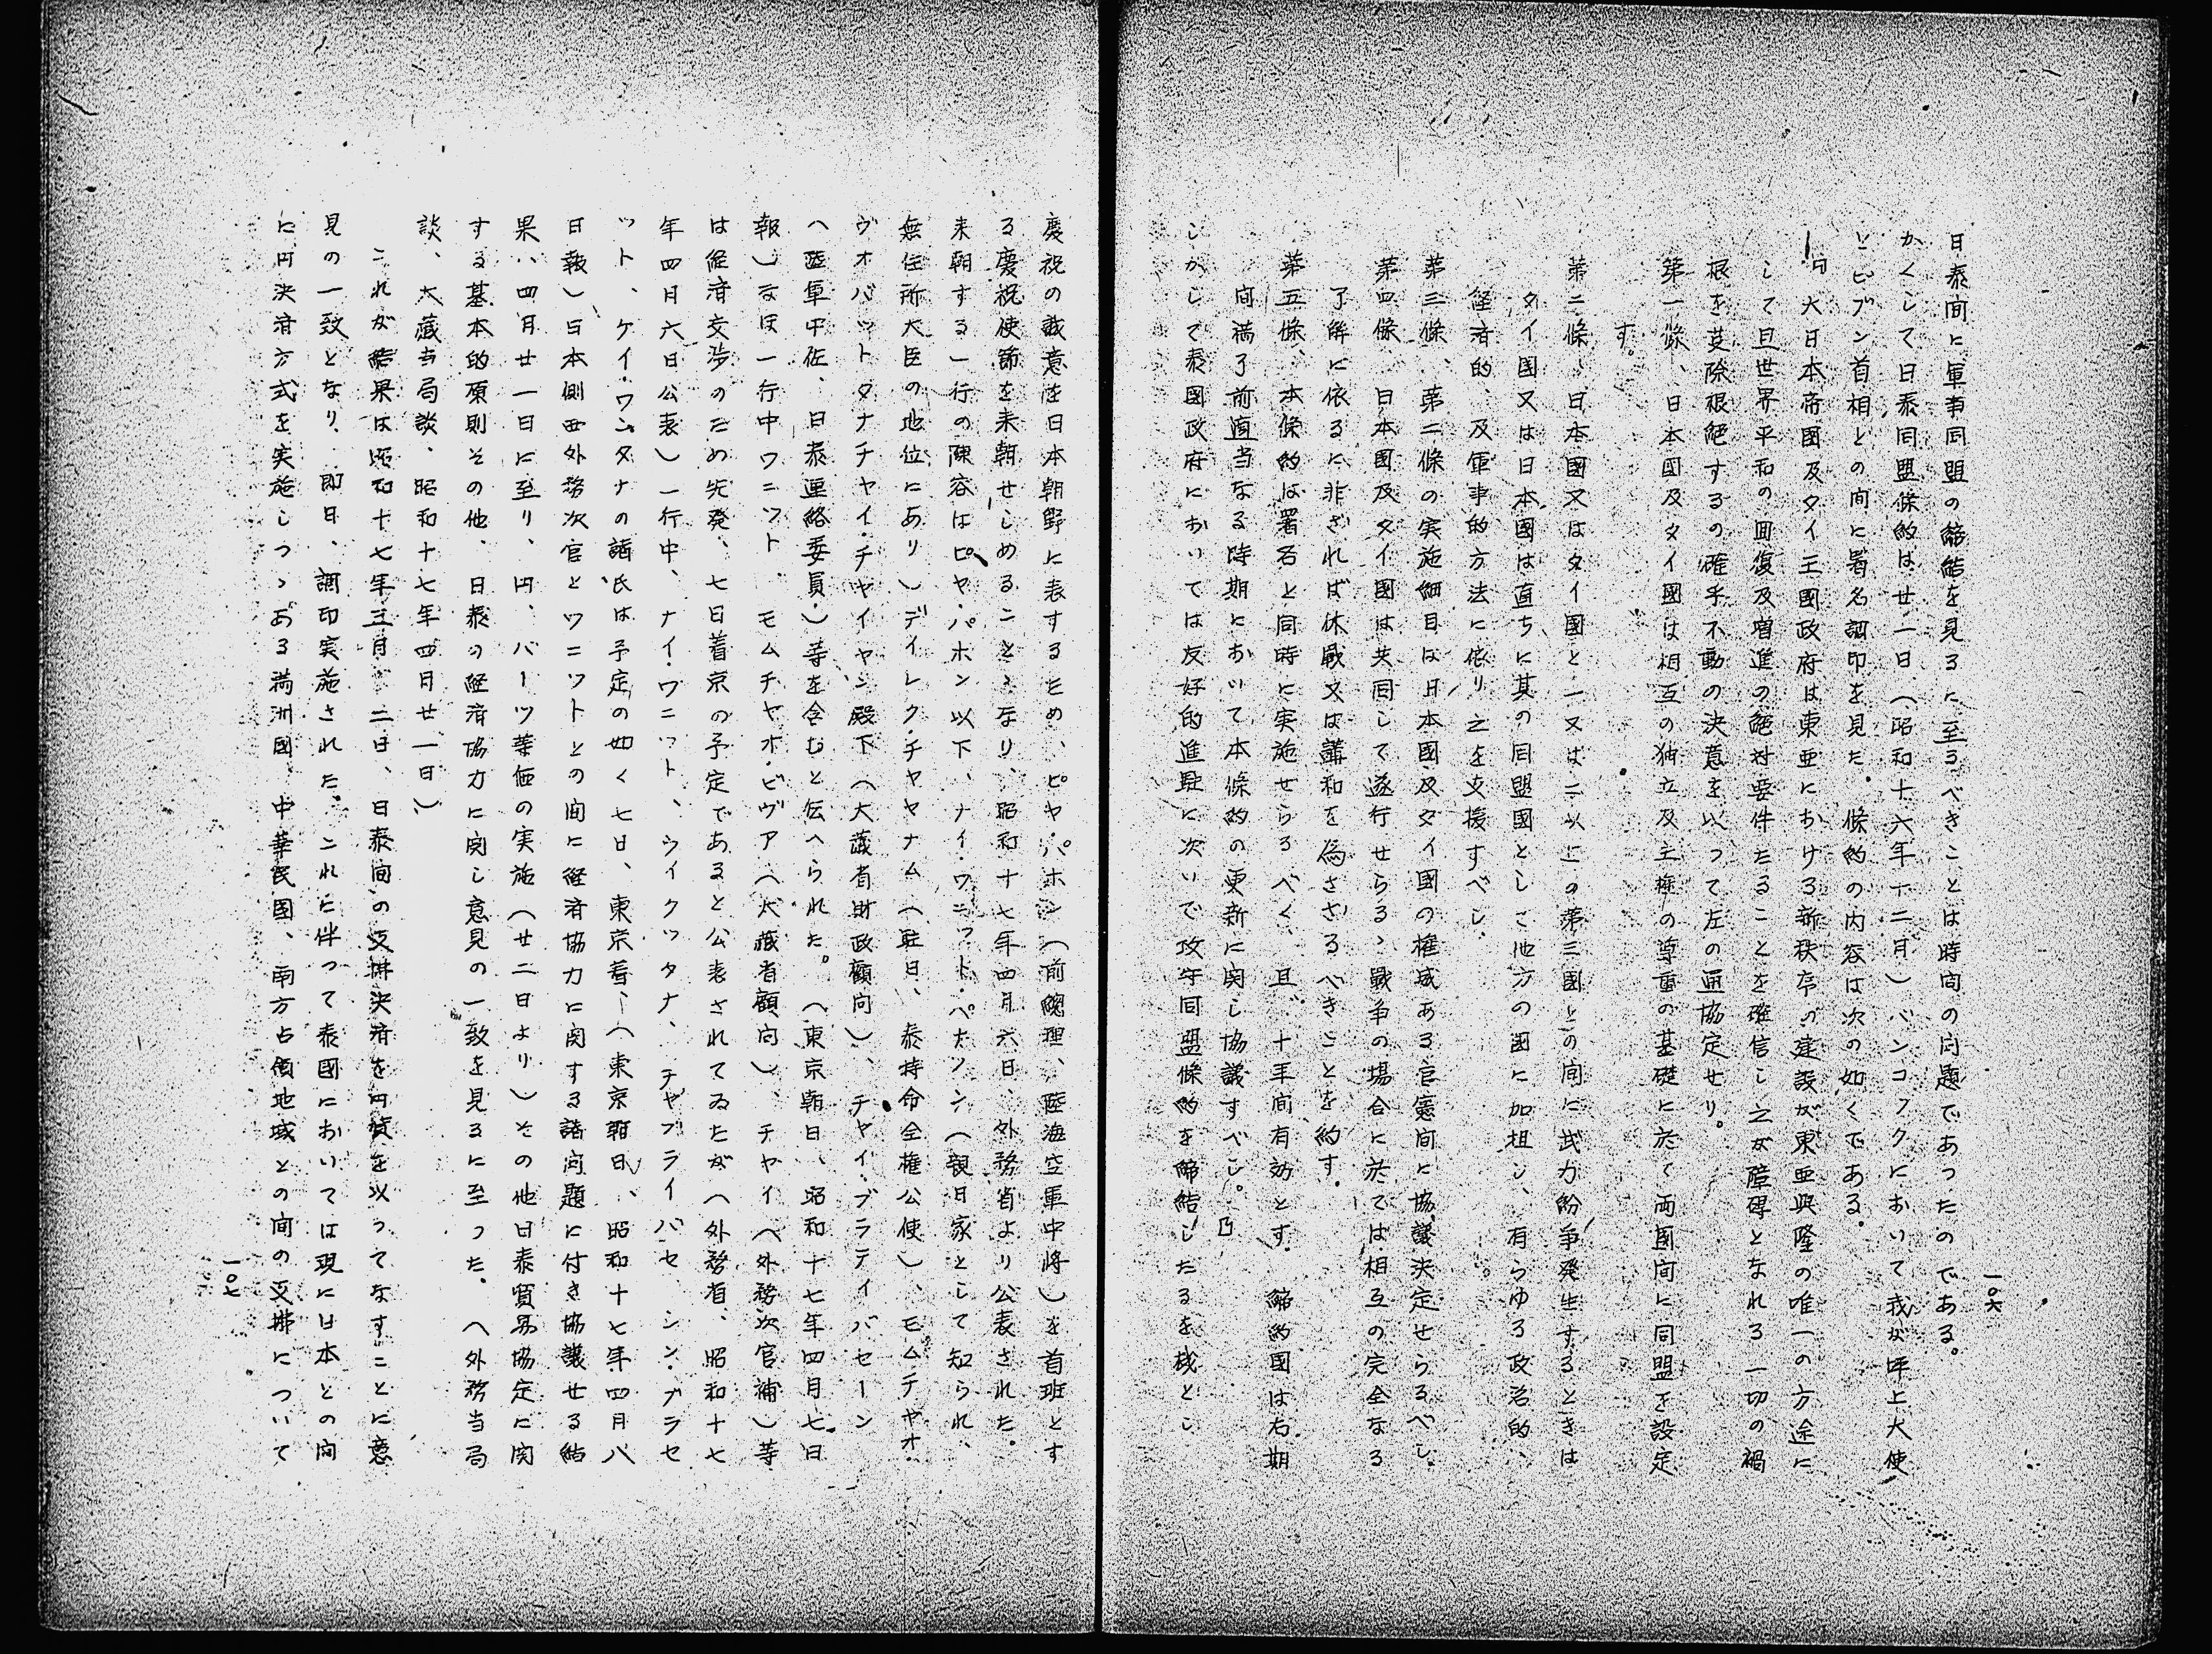 一〇六
日泰間に軍事同盟の締結を見るに至るべきことは時間の問題であつたのである。
かくして日泰同盟條約は廿一日（昭和十六年十二月）バンコツクにおいて我が坪上大使
とピブン首相との间に署名調印を見た。條約の内容は次の如くである。
大日本帝國及タイ王國政府は東亜における新秩序の建設が東亜興隆の唯一の方途に
して且世界平和の回復及増進の絶対要件たることを確信し之が障碍となれる一切の禍
根を芟除根絶するの確乎不動の決意を以つて左の通協定せり。
第一條、日本國及タイ國は相互の独立及主権の尊重の基礎に於て両國间に同盟を設定
す。
第二條、日本國又はタイ國と一又は二以上の第三國との间に武力紛争発生するときは
タイ国又は日本國は直ちに其の同盟國として他方の國に加担し、有らゆる政治的、
経済的、及軍事的方法に依り之を支援すべし、
第三條、第二條の実施細目は日本國及タイ国の権威ある官憲间に協議決定せらるべし。
第四條、日本国及タイ國は共同して遂行せらるゝ戰争の場合に於ては相互の完全なる
了解に依るに非ざれば休戰又は講和を為さざるべきことを約す。
第五條、本條約は署名と同時に実施せらるべく、且、十年间有効とす。締約國は右期
间満了前適当なる時期において本條約の更新に関し協議すべし。
しかして泰國政府においては友好的進駐に次いで攻守同盟條約を締結したるを機とし
慶祝の誠意を日本朝野に表するため、ピヤ・パホン（前總理、陸海空軍中将）を首班とす
る慶祝使節を来朝せしめることゝなり、昭和十七年四月六日、外務省より公表された。
来朝する一行の陣容はピヤ・パホン以下、ナイ・ワニツト・パナノン（親日家として知られ、
無任所大臣の地位にあり）デイレク・チヤヤナム（駐日、泰特命全権公使）、モム・チヤオ・
ヴオバツトダナチヤイ・チヤイヤン殿下（大蔵省財政顧问）、チヤイ・プラテイパセーン
（陸軍中佐、日泰連絡委員）等を含むと伝へられた。（東京朝日、昭和十七年四月七日
報）なほ一行中ワニツト、モムチヤオ・ビヴア（大蔵省顧问）、チヤイ（外務次官補）等
は経済交渉のため先発、七日着京の予定であると公表されてゐたが（外務省、昭和十七
年四月六日公表）一行中、ナイ・ワニツト、ウイクツタナ、チヤブライパセ、シン・プラセ
ット、ケイ・ワンタナの諸氏は予定の如く七日、東京着、（東京朝日、昭和十七年四月八
日報）日本側西外務次官とワニツトとの间に経済協力に関する諸问題に付き協議せる結
果、四月廿一日に至り、円、バーツ等価の実施（廿二日より）その他日泰貿易協定に関
する基本的原則その他、日泰の経済協力に関し意見の一致を見るに至つた。（外務当局
談、大蔵当局談、昭和十七年四月廿一日）
これが結果は昭和十七年三月二日、日泰间の支拂決済を円貨を以つてなすことに意
見の一致となり、即日、調印実施された。これに伴つて泰國においては現に日本との间
に円決済方式を実施しつゝある満洲國、中華民国、南方占領地域との间の支拂について
一〇七